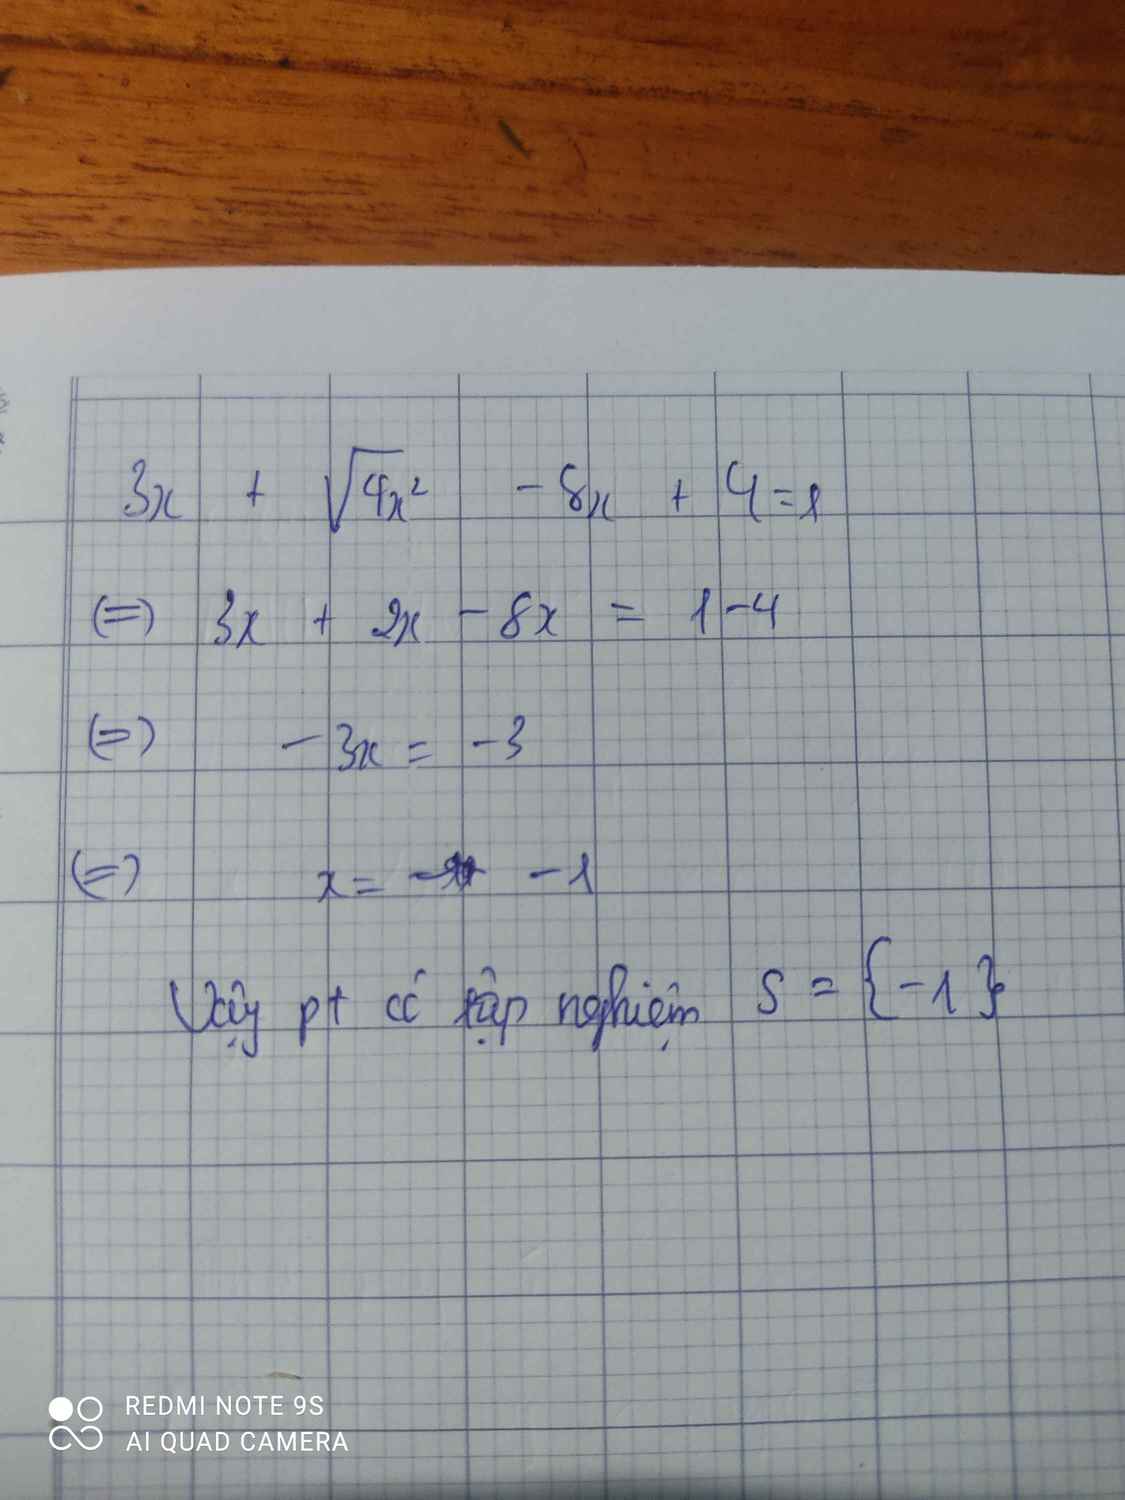 3x + √4x² - 8x + 4 = 1
(=) 3x + 2x - 8x = 1 - 4
(=) - 3x = - 3
(=) x = - 1
Vậy pt có tập nghiệm S = {-1}
REDMI NOTE 9S
AI QUAD CAMERA